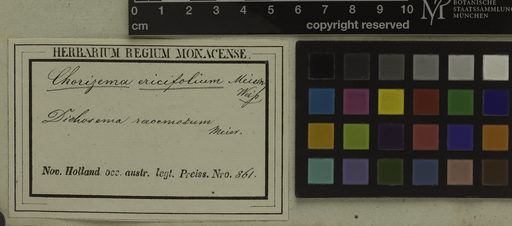 5 6 7 8 9 10
cm
copyright reserved
BOTANISCHE
STAATSSAMMLUNG
MÜNCHEN
HERBARIUM REGIUM MONACENSE.
Chorizema ericifolium Meissn
Dichosema racemosum
Meisn.
Nov. Holland occ. austr. legt. Preiss. Nro. 861.